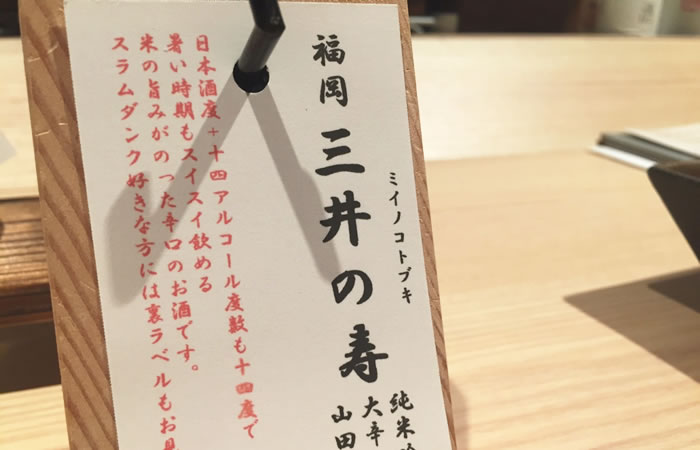 福岡 三井の寿
ミイノコトブキ
純米
大辛
山田
日本酒度+十四アルコール度数も十四度で
暑い時期もスイスイ飲める
米の旨みがのった辛口のお酒です。
スラムダンク好きな方には裏ラベルもお見